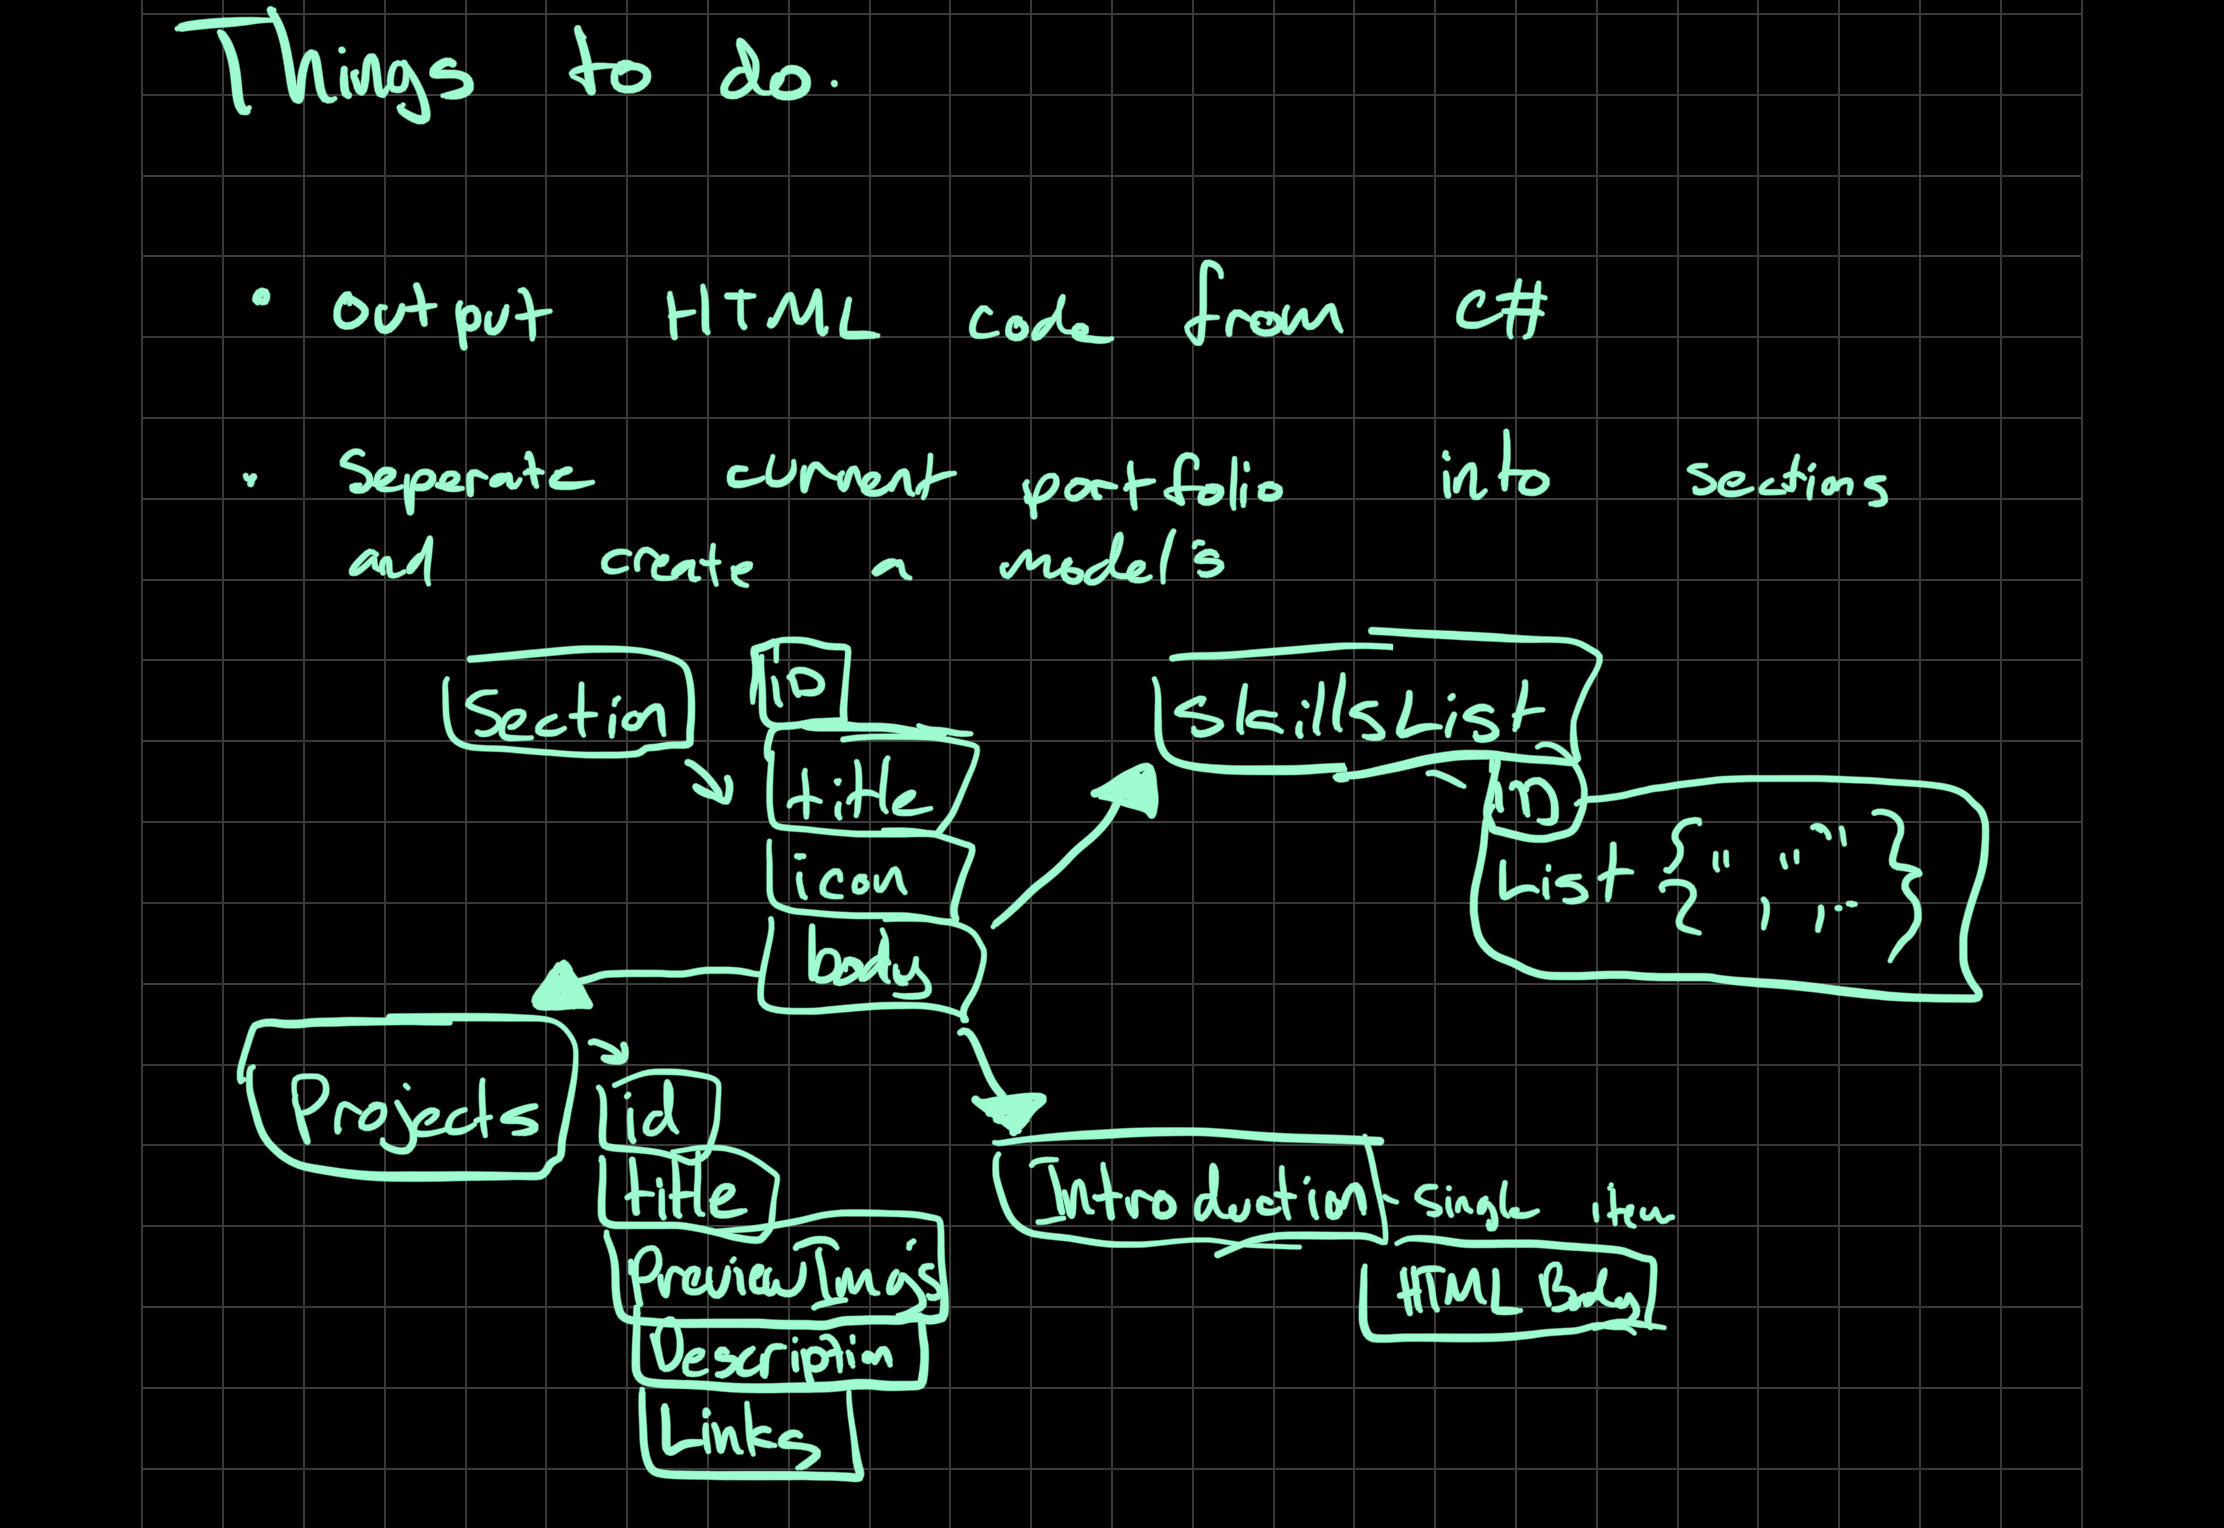 Things to do.
• Output HTML code from C#
• Seperate current portfolio into sections
and create a models
Section
ID
title
icon
body
SkillsList
ID
List {" ", " ", ..}
Projects
id
title
PreviewImgs
Description
Links
Introduction - Single item
HTML Body